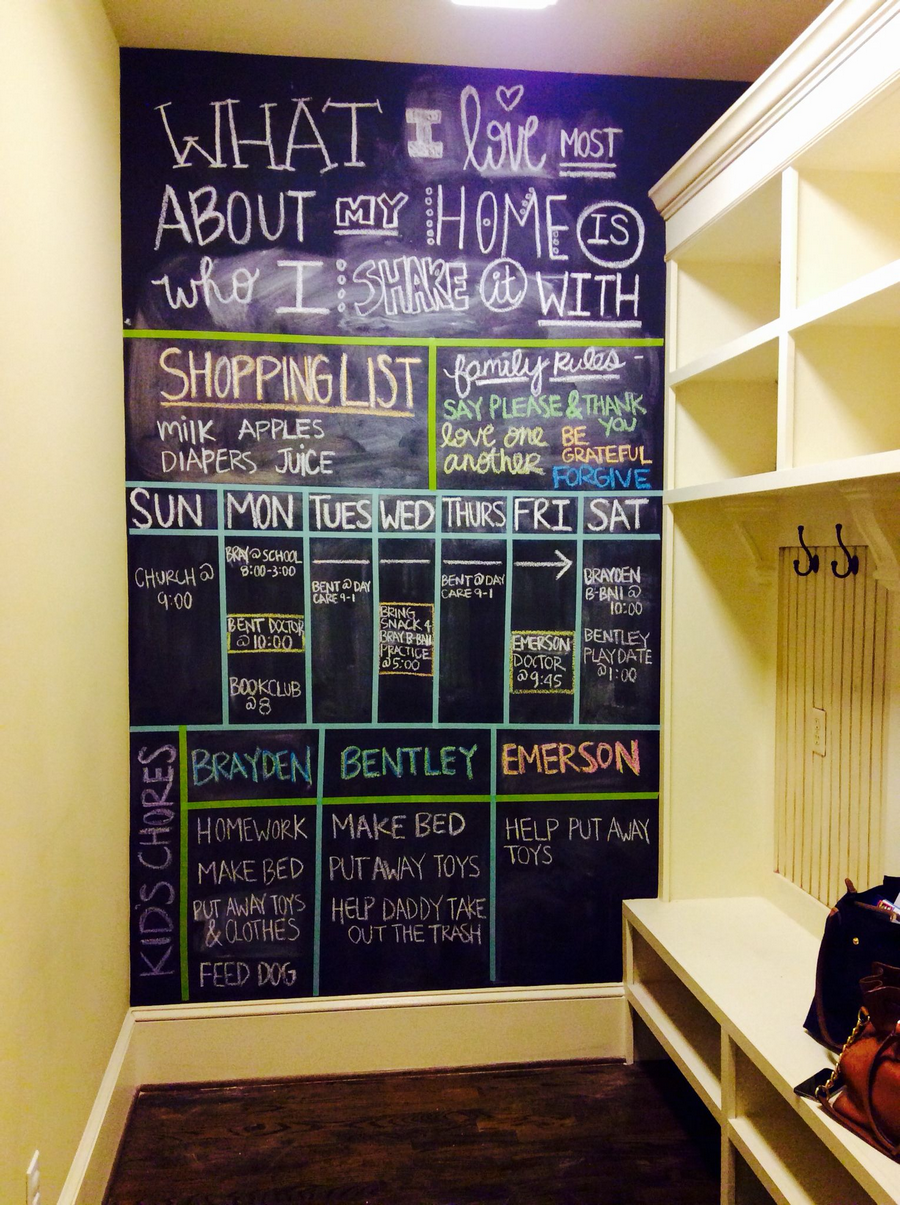 WHAT I love MOST
ABOUT MY HOME IS
who I SHARE it WITH
SHOPPING LIST
milk APPLES
DIAPERS JUICE
family rules -
SAY PLEASE & THANK
YOU
love one
another
BE
GRATEFUL
FORGIVE
SUN MON TUES WED THURS FRI SAT
CHURCH @
9:00
BRAY @ SCHOOL
8:00-3:00
BENT DOCTOR
@ 10:00
BOOKCLUB
@ 8
BENT @ DAY
CARE 9-1
BRING
SNACK 4
BRAY B-BAll
PRACTICE
@ 5:00
BENT @ DAY
CARE 9-1
EMERSON
DOCTOR
@ 9:45
BRAYDEN
B-BAll @
10:00
BENTLEY
PLAYDATE
@ 1:00
KID'S CHORES
BRAYDEN
HOMEWORK
MAKE BED
PUT AWAY TOYS
& CLOTHES
FEED DOG
BENTLEY
MAKE BED
PUT AWAY TOYS
HELP DADDY TAKE
OUT THE TRASH
EMERSON
HELP PUT AWAY
TOYS